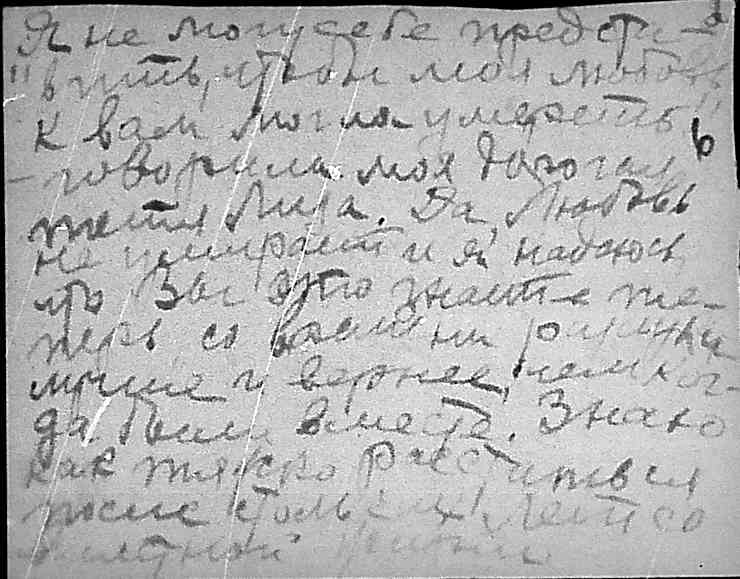 Я не могу себе предста-
"вить, чтобы моя любовь
к вам могла умереть"
- говорила моя дорогая
тетя Лиза. Да, Любовь
не умирает и я надеюсь
что Вы это знаете те-
перь со всеми разлуки
лучше и вернее, чем ког-
да были вместе. Знаю
как тяжко расставаться
после стольких лет со